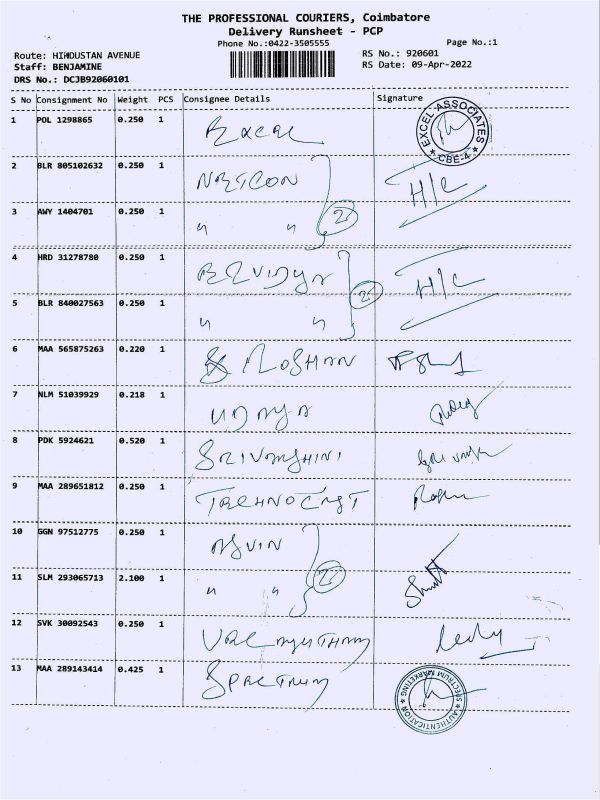 THE PROFESSIONAL COURIERS, Coimbatore
Delivery Runsheet - PCP
Phone No.:0422-3505555 Page No.:1
Route: HINDUSTAN AVENUE RS No.: 920601
Staff: BENJAMINE RS Date: 09-Apr-2022
DRS No.: DCJB92060101
S No Consignment No Weight PCS Consignee Details Signature
1 POL 1298865 0.250 1 Excel EXCEL ASSOCIATES * CBE-4 *
2 BLR 805102632 0.250 1 NETCON H/C
3 AWY 1404701 0.250 1 " "
4 HRD 31278780 0.250 1 H/C
5 BLR 840027563 0.250 1 " "
6 MAA 565875263 0.220 1 ROSHAN
7 NLM 51039929 0.218 1 UDAYA
8 PDK 5924621 0.520 1 SRIVARSHINI
9 MAA 289651812 0.250 1 TECHNOCAST
10 GGN 97512775 0.250 1 ASVIN
11 SLM 293065713 2.100 1 " "
12 SVK 30092543 0.250 1
13 MAA 289143414 0.425 1 SPECTRUM SPECTRUM MARKETING * AUTHENTICATION *